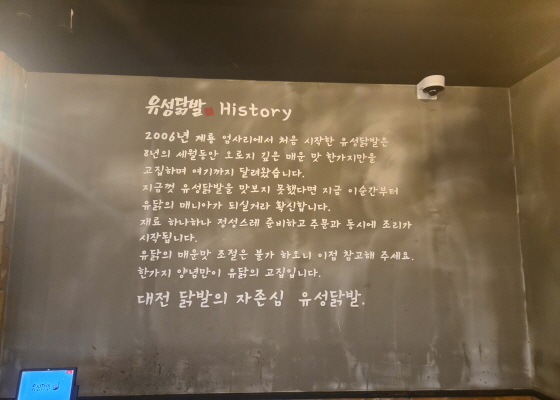 유성닭발 History
2006년 계룡 엄사리에서 처음 시작한 유성닭발은
8년의 세월동안 오로지 깊은 매운 맛 한가지만을
고집하며 여기까지 달려왔습니다.
지금껏 유성닭발을 맛보지 못했다면 지금 이순간부터
유닭의 매니아가 되실거라 확신합니다.
재료 하나하나 정성스레 준비하고 주문과 동시에 조리가
시작됩니다.
유닭의 매운맛 조절은 불가 하오니 이점 참고해 주세요.
한가지 양념만이 유닭의 고집입니다.
대전 닭발의 자존심 유성닭발.